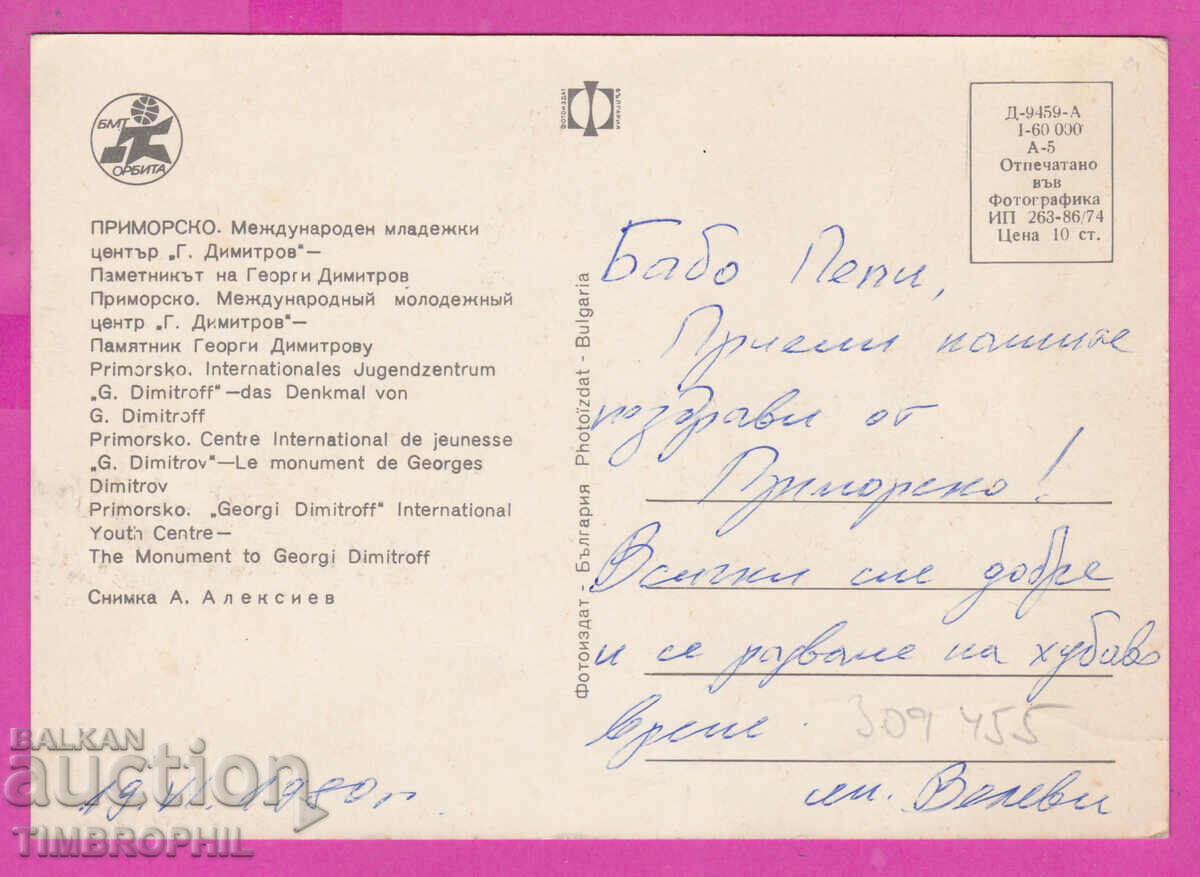 БМТ
ОРБИТА
ПРИМОРСКО. Международен младежки
център „Г. Димитров"—
Паметникът на Георги Димитров
Приморско. Международный молодежный
центр „Г. Димитров"—
Памятник Георги Димитрову
Primorsko. Internationales Jugendzentrum
„G. Dimitroff"—das Denkmal von
G. Dimitroff
Primorsko. Centre International de jeunesse
„G. Dimitrov"—Le monument de Georges
Dimitrov
Primorsko. „Georgi Dimitroff" International
Youth Centre—
The Monument to Georgi Dimitroff
Снимка А. Алексиев
19.VI.1980г.
ФОТОИЗДАТ
БЪЛГАРИЯ
Фотоиздат - България Photoïzdat - Bulgaria
Д-9459-А
I-60 000
А-5
Отпечатано
във
Фотографика
ИП 263-86/74
Цена 10 ст.
Бабо Пепи,
Приеми нашите
поздрави от
Приморско!
Всички сме добре
и се радваме на хубаво
време.
309455
сем. Велеви
BALKAN
auction
TIMBROPHIL